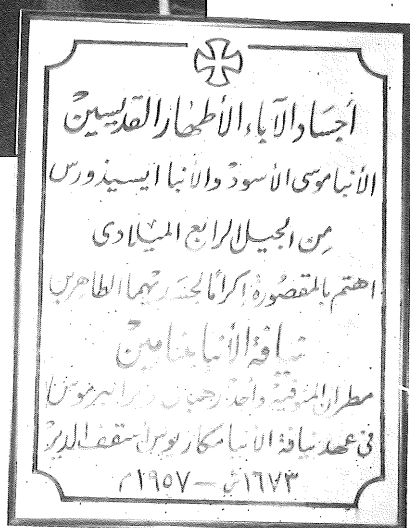 أجساد الآباء الأطهار القديسين
الأنبا موسى الأسود والأنبا ايسيذورس
من الجيل الرابع الميلادى
اهتم بالمقصورة إكرامًا لجسديهما الطاهرين
نيافة الأنبا بنيامين
مطران المنوفية وأحد رهبان دير البرموس
فى عهد نيافة الأنبا مكاريوس أسقف الدير
١٦٧٣ ش - ١٩٥٧ م